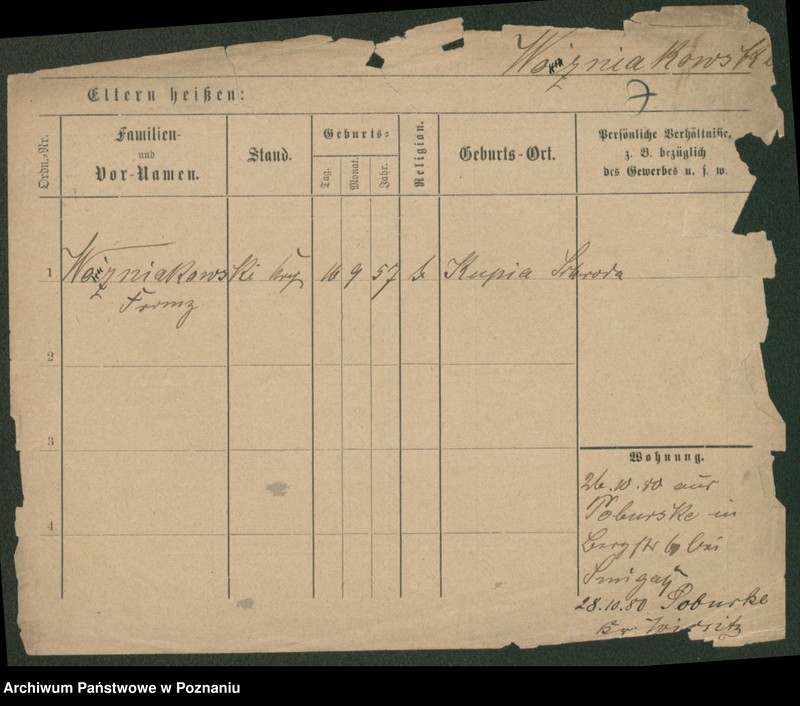 Woźniakowski
7
Eltern heißen:
Ordn.-Nr.
Familien-
und
Vor-Namen.
Stand.
Geburts-
Tag.
Monat.
Jahr.
Religion.
Geburts-Ort.
Persönliche Verhältniße,
z. B. bezüglich
des Gewerbes u. s. w.
1 Woźniakowski 16 9 57 k Kupia Schroda
Franz
2
3
4
Wohnung.
26.10.80 aus
Poburke in
Bergstr 6 bei
28.10.80 Poburke
Kr. Wirsitz
Archiwum Państwowe w Poznaniu